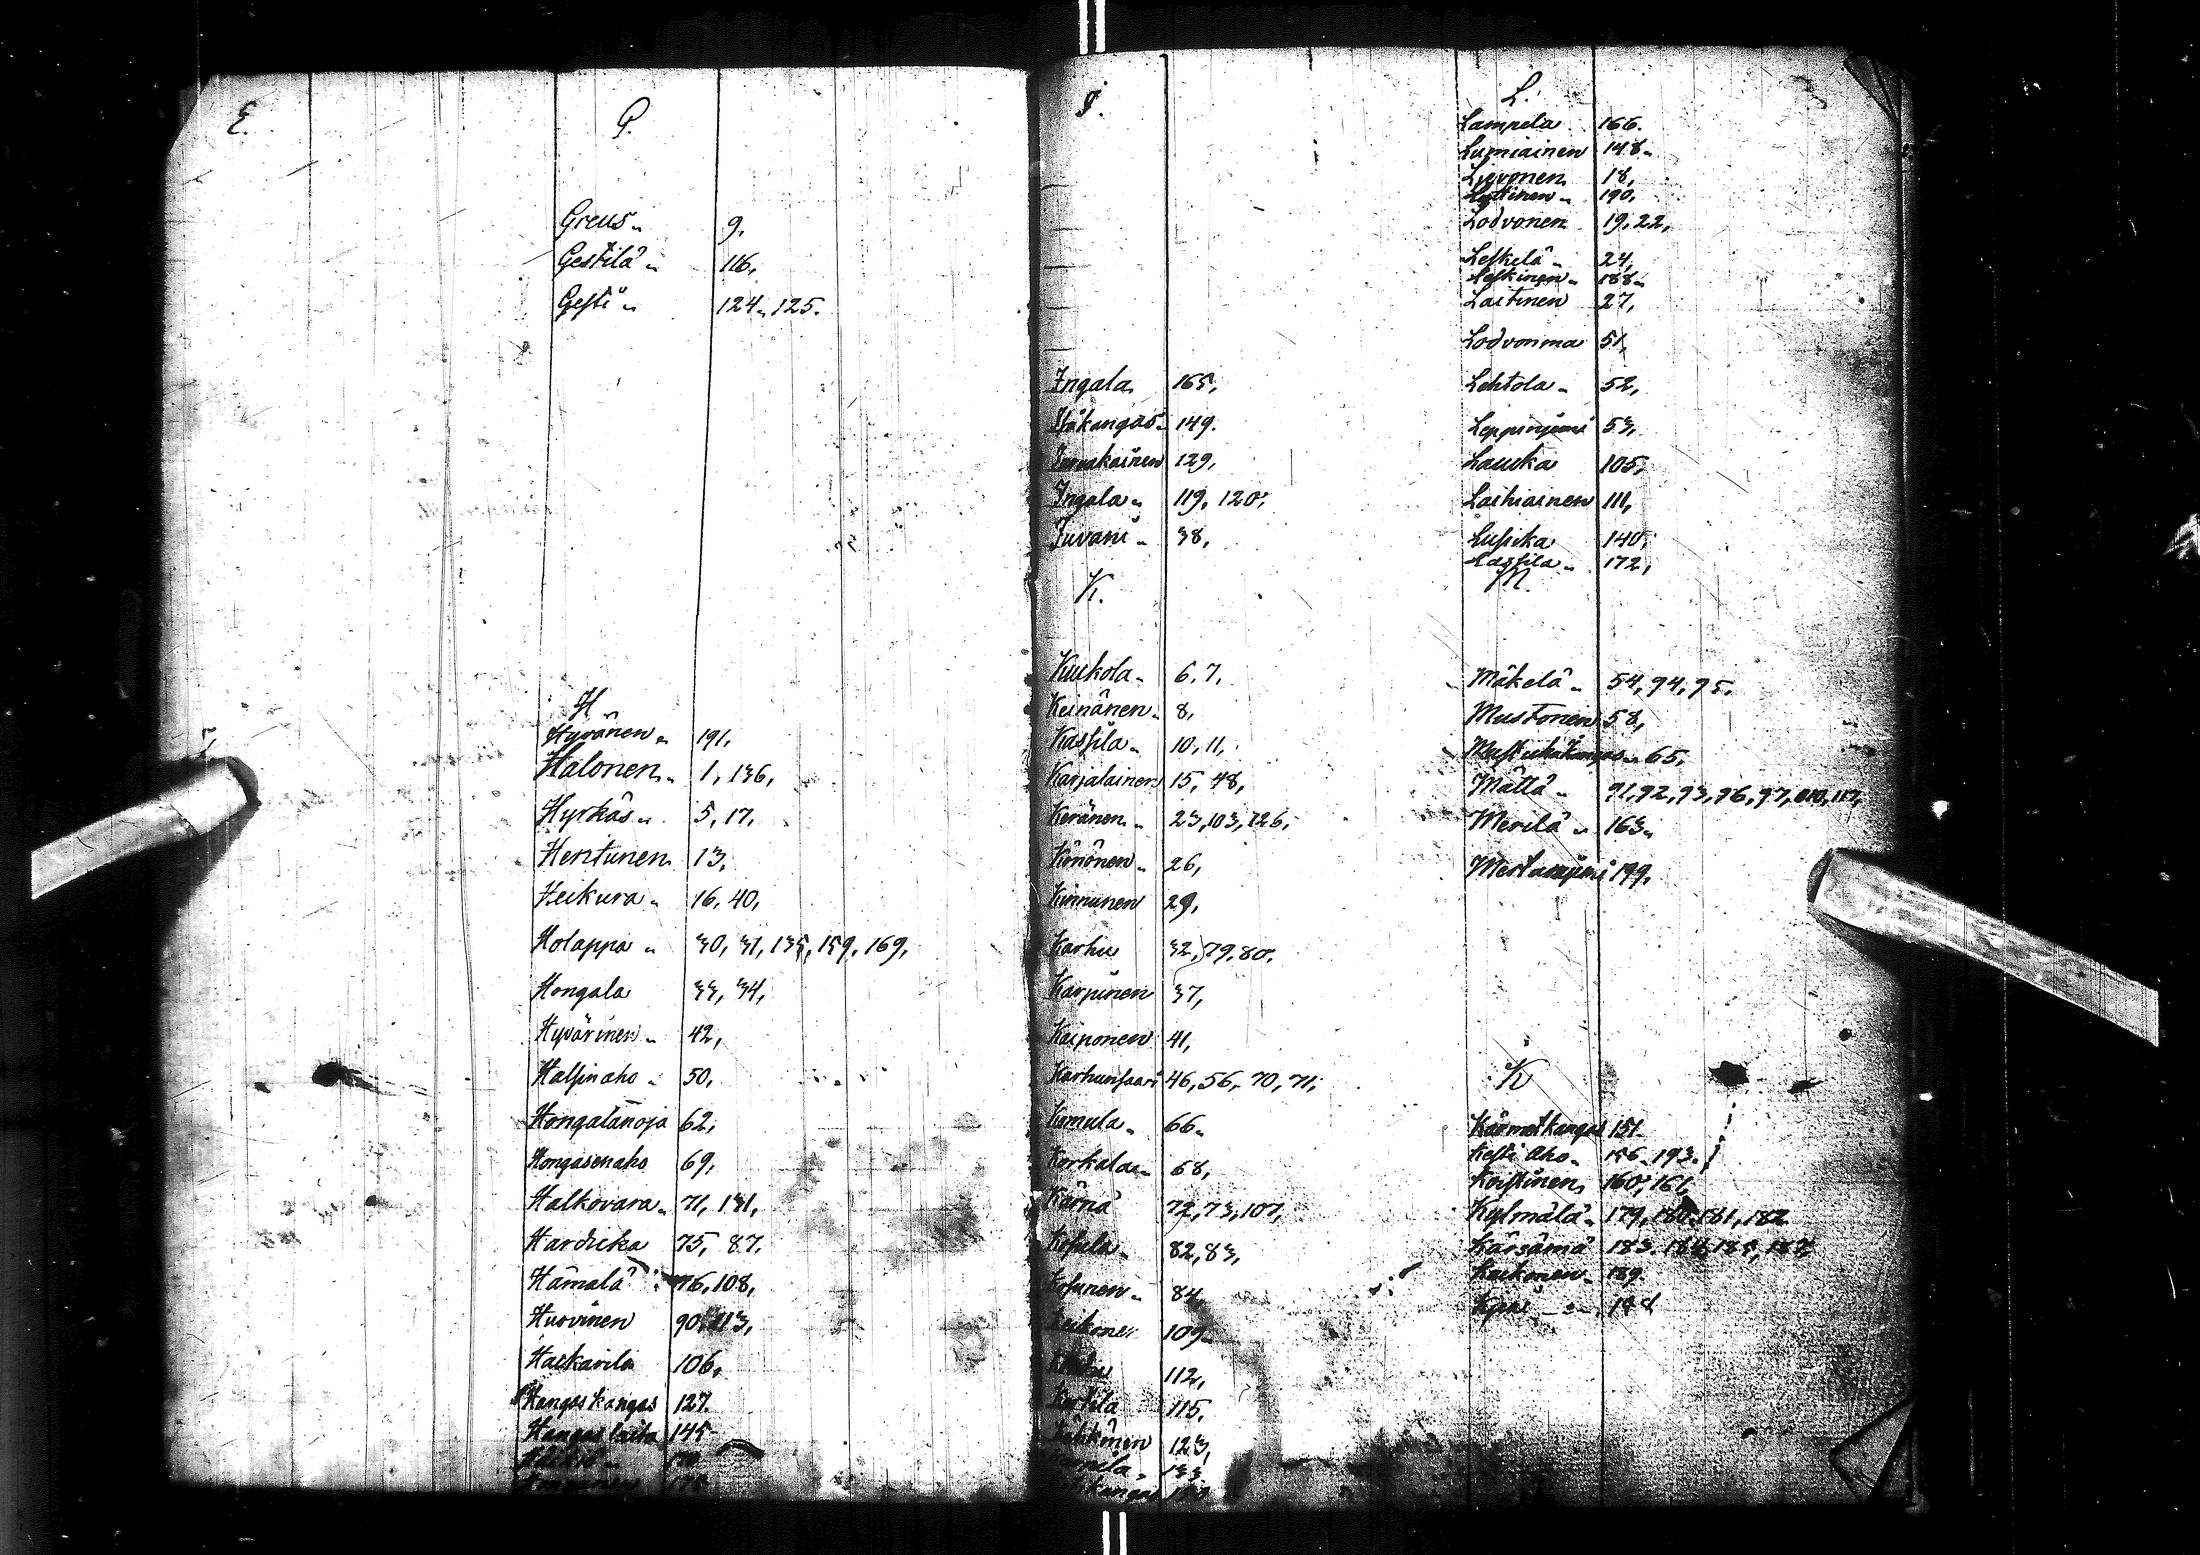 E.
G.
Greus 9.
Gestilä 116,
Gesti 124, 125.
H
Hyvönen 191,
Halonen 1, 136,
Hyrkäs 5, 17,
Henttunen 13,
Heikura 16, 40,
Holappa 30, 31, 135, 159, 169,
Hongala 33, 34,
Hyvärinen 42,
Halsinaho 50,
Hongalanoja 62,
Hongasenaho 69,
Halkovara 71, 131,
Hardicka 75, 87.
Hämälä 76, 108,
Huovinen 90, 113,
Haikarila 106,
Hangaskangas 127.
Hangaslaita 145
I.
Ingala 165,
Isokangas 149.
129,
Ingala 119, 120,
Juvani 38,
K.
Kuckola 6, 7,
Keinänen 8,
Kassila 10, 11,
Karjalainen 15, 48,
Keränen 23, 103, 126,
Könönen 26,
Kinnunen 29,
Karhu 32, 79, 80.
Karpinen 37,
Kaiponen 41,
Karhunsaari 46, 56, 70, 71,
Kemula 66
Korkala 68,
Kärnä 72, 73, 107,
Kesula 82, 83,
84,
109
112,
115,
Kähkönen 123,
133
L.
Lampela 166.
Lumiainen 148
Livonen 18,
190,
Lodvonen 19, 22,
Leskelä 24,
Leskinen 188
Laitinen 27,
Lodvonma 51,
Lehtola 52,
Leppiniemi 53,
Laucka 105,
Laihiainen 111,
Lusicka 140,
Lassila 172,
M.
Mäkelä 54, 94, 95.
Mustonen 58,
65,
Mättä 91, 92, 93, 96, 97, 117,
Merilä 163
Mertaniemi 199.
K
Käärmetkangas 151
Kesti aho 156, 193.
Koistinen 160, 161,
Kylmälä 179, 180, 181, 182
Kärsämä 183.
Kaikonen 189.